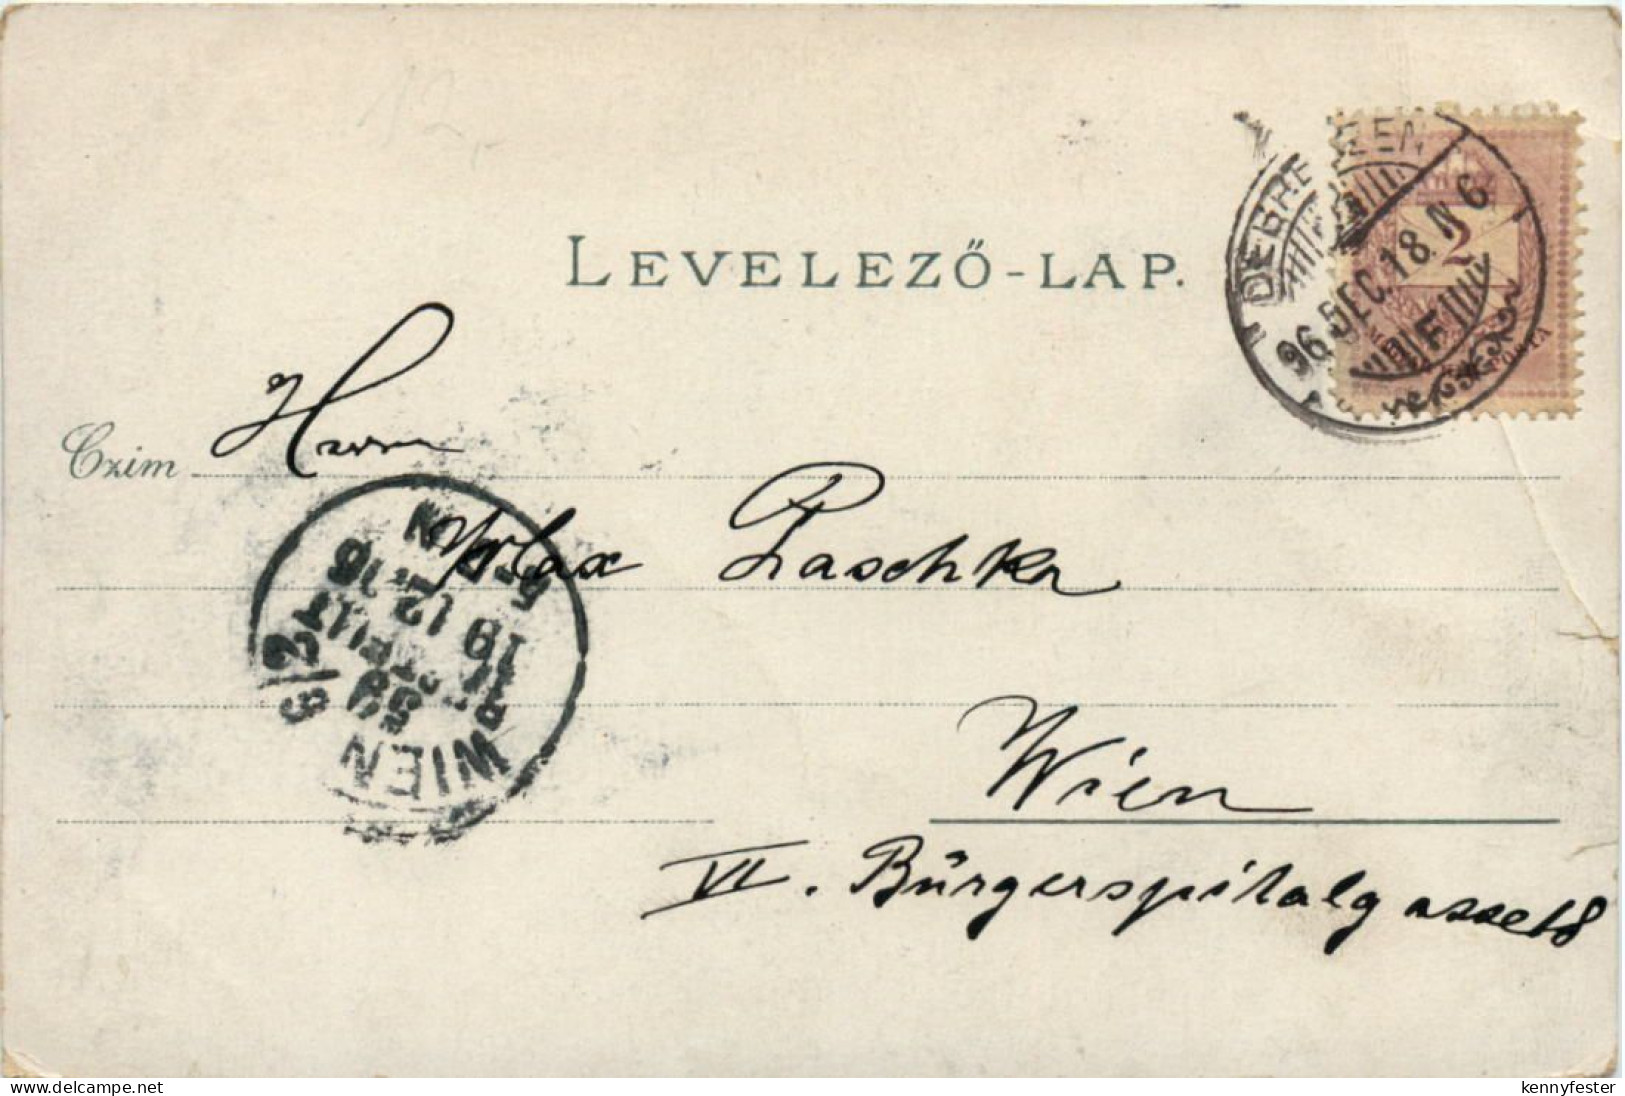 LEVELEZŐ-LAP.
DEBRECZEN
96 DEC. 18. N 6
F
2
Czim
Herrn
Max Paschka
Wien
VI. Bürgerspitalgasse 18
WIEN
3/2
59
19 12 96
www.delcampe.net
kennyfester